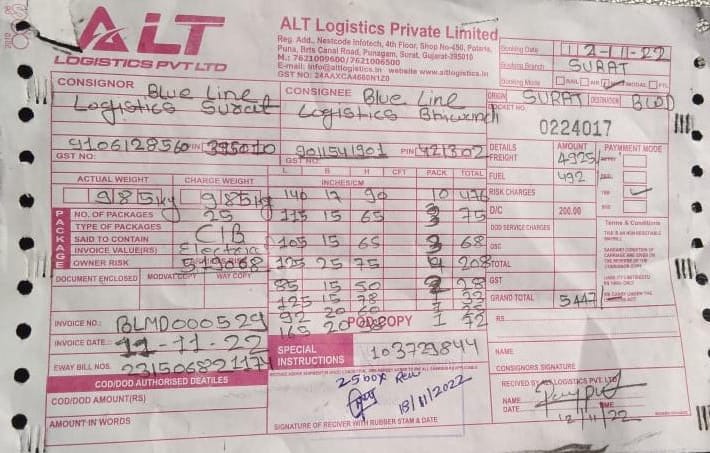 ALT
LOGISTICS PVT LTD
ALT Logistics Private Limited
Reg. Add., Nestcode Infotech, 4th Floor, Shop No-450, Polaris,
Puna, Brts Canal Road, Punagam, Surat, Gujarat-395010
M.: 7621009600/7621006500
E-mail: info@altlogistics.in website www.altlogistics.in
GST NO: 24AAXCA4660N1Z0
Booking Date 12-11-22
Booking Branch SURAT
Booking Mode RAIL AIR MODAL FTL
ORIGIN SURAT DESTINATION BWD
DOCKET NO.
0224017
CONSIGNOR Blue Line
Logistics Surat
9106128560 PIN 395010
GST NO:
CONSIGNEE Blue Line
Logistics Bhiwandi
9011541901 PIN 421302
GST NO:
ACTUAL WEIGHT CHARGE WEIGHT
985kg 985kg
PACKAGE
NO. OF PACKAGES 25
TYPE OF PACKAGES CIB
SAID TO CONTAIN Electric
INVOICE VALUE(RS)
OWNER RISK
DOCUMENT ENCLOSED MODVAT COPY WAY COPY
INVOICE NO.: BLMD000529
INVOICE DATE: 11-11-22
EWAY BILL NOS.
COD/DOD AUTHORISED DEATILES
COD/DOD AMOUNT(RS)
AMOUNT IN WORDS
L B H CFT PACK TOTAL
INCHES/CM
140 17 90 10 476
115 15 65 3 75
105 15 65 3 68
125 25 75 4 208
85 15 50 2 28
125 15 78
92 20 60
165 20 1 72
POD COPY
SPECIAL
INSTRUCTIONS 103729844
25 box Rec
18/11/2022
SIGNATURE OF RECIVER WITH RUBBER STAM & DATE
DETAILS AMOUNT PAYMMENT MODE
FREIGHT 4925/-
FUEL 492
RISK CHARGES
D/C 200.00
DOD SERVICE CHARGES
OSC
TOTAL
GST
GRAND TOTAL 5447/-
Terms & Conditions
RS
NAME
CONSIGNORS SIGNATURE
RECIVED BY ALT LOGISTICS PVT. LTD
NAME
DATE TIME
12/11/22